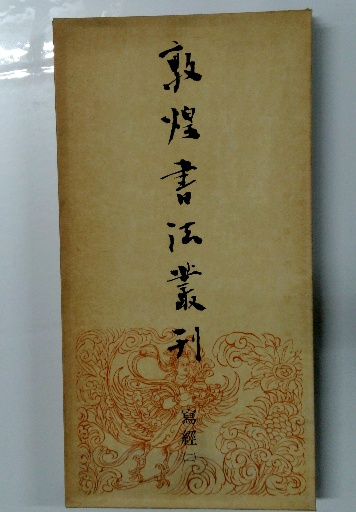 敦煌書法叢刊
寫經二